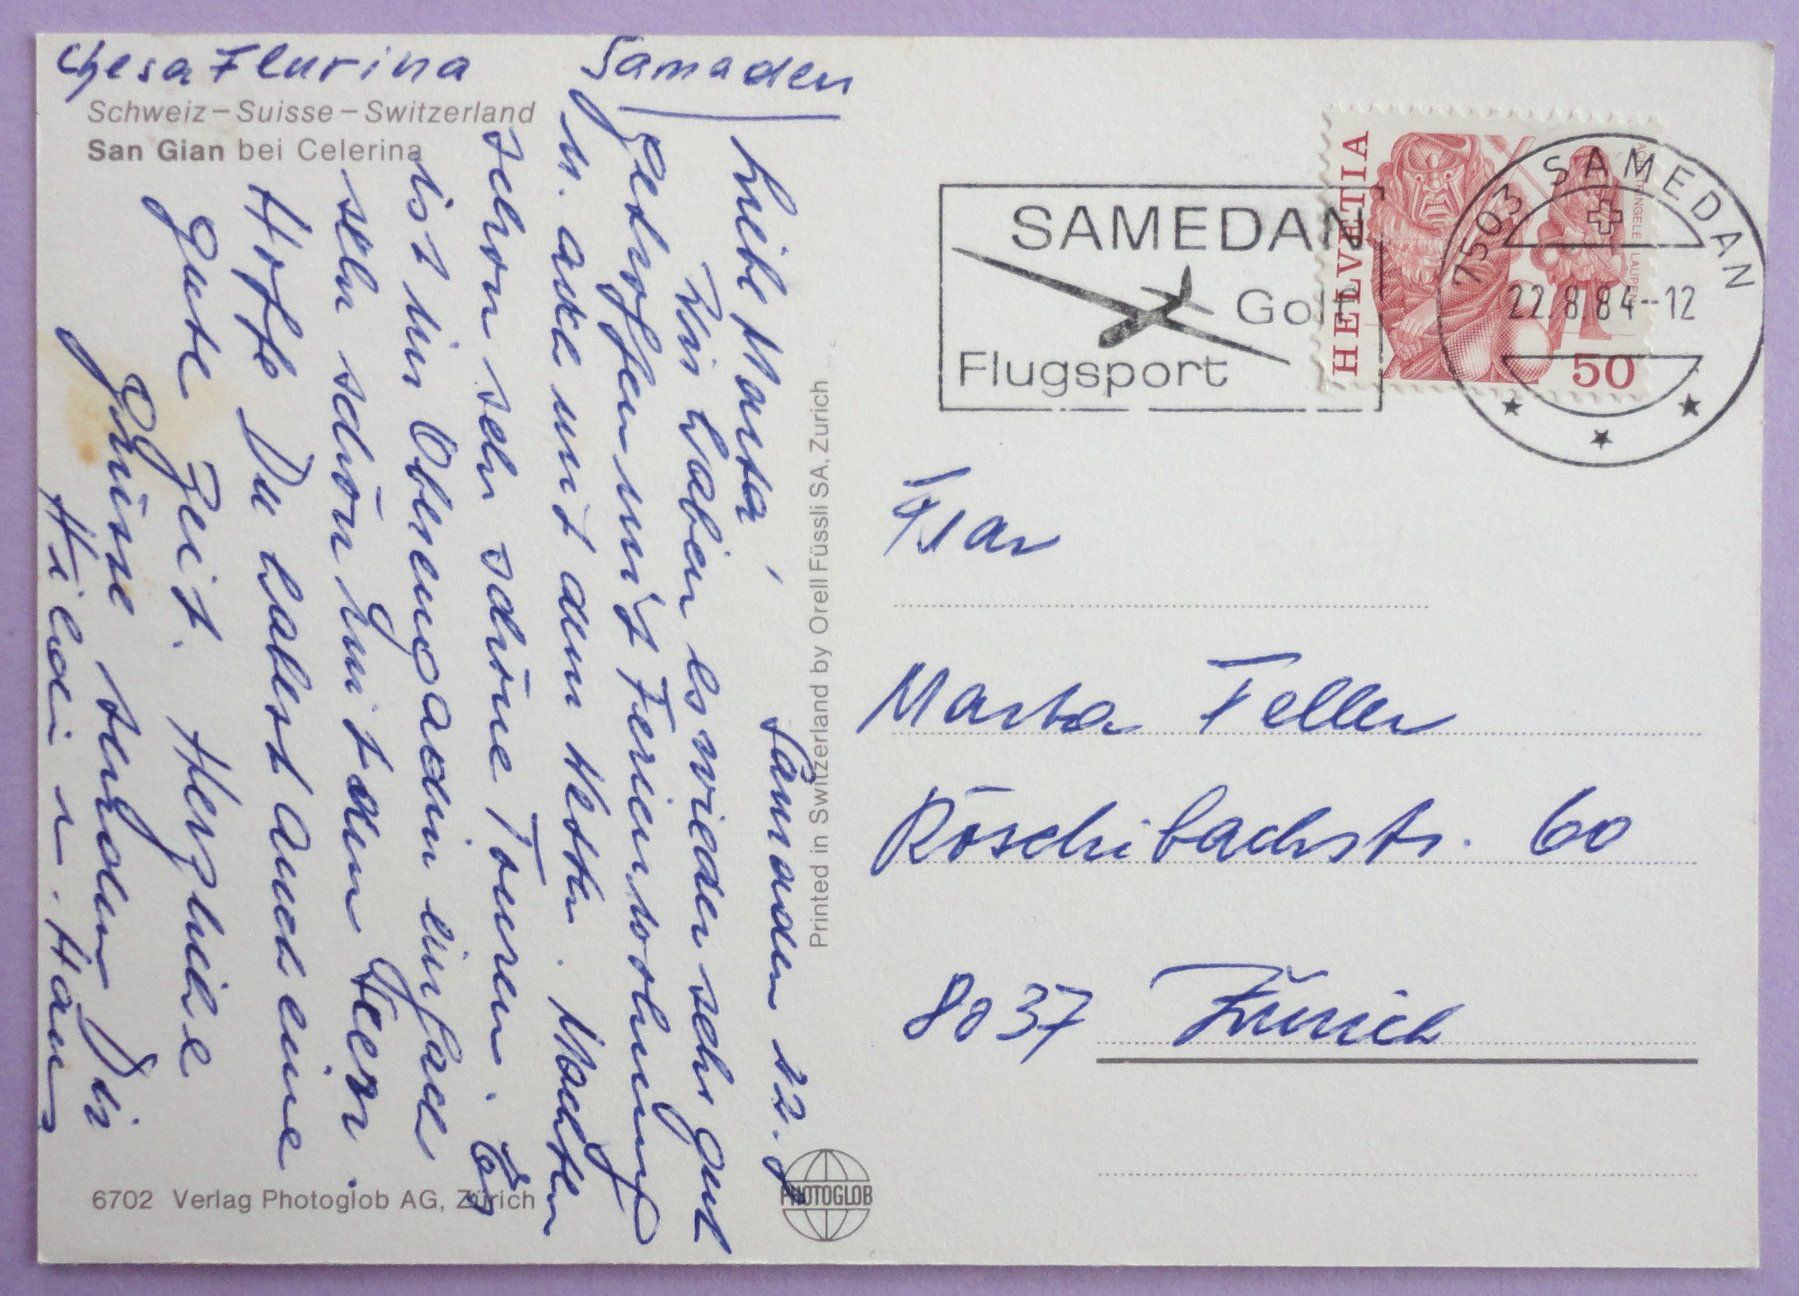 Chesa Flurina Samaden
Schweiz – Suisse – Switzerland
San Gian bei Celerina
Samaden 12.
Liebe Marta,
Wir haben es wieder sehr gut
getroffen mit Ferienwohnung
u. auch mit dem Wetter. Machten
schon sehr schöne Touren. Es
ist im Oberengadin einfach
sehr schön mit den Seen.
Hoffe Du habest auch eine
gute Zeit. Herzliche
Grüsse senden Dir
Hildi u. Hans
6702 Verlag Photoglob AG, Zürich
Printed in Switzerland by Orell Füssli SA, Zürich
PHOTOGLOB
SAMEDAN
Golf
Flugsport
HELVETIA
50
7503 SAMEDAN
22.8.84--12
Frau
Marta Feller
Röschibachstr. 60
8037 Zürich